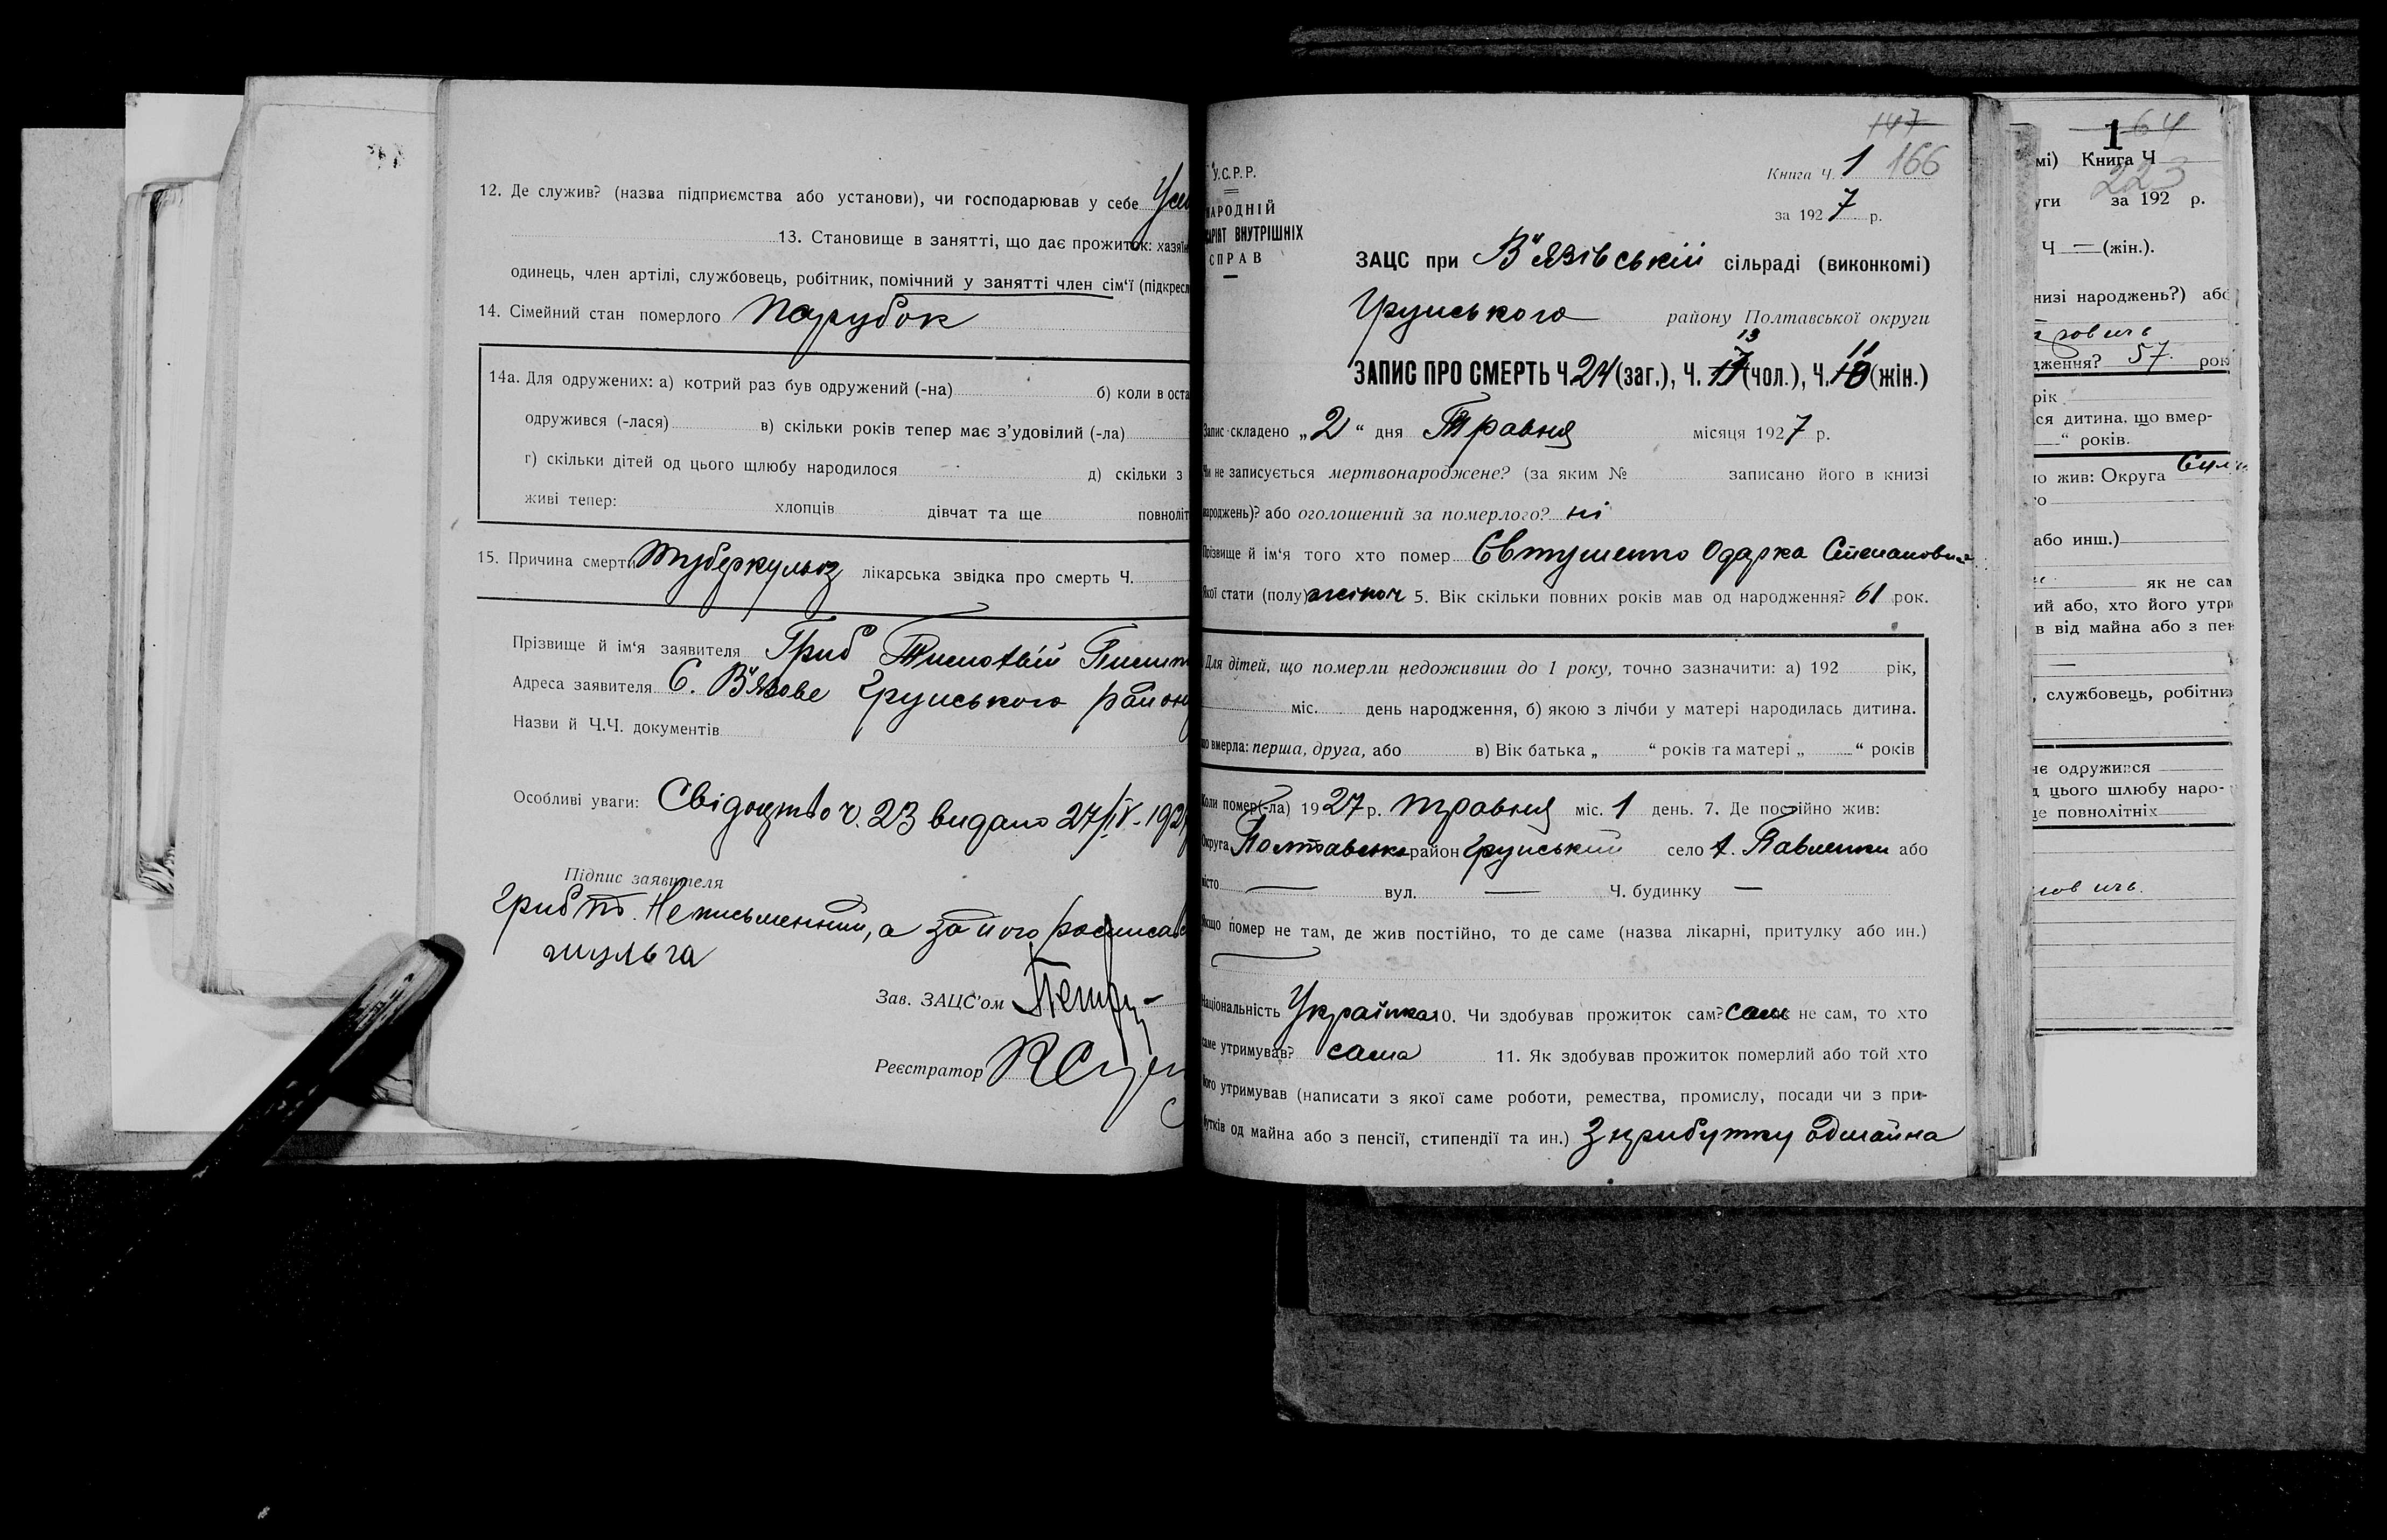 12. Де служив? (назва підприємства або установи), чи господарював у себе
13. Становище в занятті, що дає прожиток: хазяїн
одинець, член артілі, службовець, робітник, помічний у занятті член сім‘ї (підкресл
14. Сімейний стан померлого парубок
14а. Для одружених: а) котрий раз був одружений (-на) б) коли в оста
одружився (-лася) в) скільки років тепер має з’удовілий (-ла)
г) скільки дітей од цього шлюбу народилося д) скільки з
живі тепер: хлопців дівчат та ще повноліт
15. Причина смерти туберкульоз лікарська звідка про смерть Ч.
Прізвище й ім‘я заявителя Гриб Тимотвій
Адреса заявителя С. В'язове Грунського району
Назви й Ч.Ч. документів
Особливі уваги: Свідоцтво ч. 23 видано 27/IV-192
Підпис заявителя
Гриб Неписьменний, а за його росписався
шульга
Зав. ЗАЦС’ом
Реєстратор
147
Книга Ч. 1 166
за 1927 р.
У.С.Р.Р.
НАРОДНІЙ
СПРАВ
ВНУТРІШНІХ
ЗАЦС при В'язівській сільраді (виконкомі)
Грунського району Полтавської округи
13 11
ЗАПИС ПРО СМЕРТЬ Ч. 24 (заг.), Ч. (чол.), Ч. 10 (жін.)
Запис складено „2“ дня Травня місяця 1927 р.
Чи не записується мертвонароджене? (за яким № записано його в книзі
народжень)? або оголошений за померлого? ні
Прізвище й ім‘я того хто помер Євтушенко Одарка Степановна
Якої стати (полу) жіноч 5. Вік скільки повних років мав од народження? 61 рок.
Для дітей, що померли недоживши до 1 року, точно зазначити: а) 192 рік,
міс. день народження, б) якою з лічби у матері народилась дитина.
що вмерла: перша, друга, або в) Вік батька „ “ років та матері „ “ років
Коли помер(-ла) 1927 р. травня міс. 1 день. 7. Де постійно жив:
Округа Полтавська район Грунський село х. Павленки або
місто — вул. — Ч. будинку —
Якщо помер не там, де жив постійно, то де саме (назва лікарні, притулку або ин.)
Національність Українка 10. Чи здобував прожиток сам? сама не сам, то хто
саме утримував? сама 11. Як здобував прожиток померлий або той хто
його утримував (написати з якої саме роботи, ремества, промислу, посади чи з при-
бутків од майна або з пенсії, стипендії та ин.) З прибутку одмайна
1 64
мі) Книга Ч
223
уги за 192 р.
Ч — (жін.).
низі народжень?) або
ович
дження? 57 рок
рік
ся дитина, що вмер-
—“ років.
о жив: Округа
го
або инш.)
як не сам
ий або, хто його утри
в від майна або з пен
, службовець, робітни
не одружився
д цього шлюбу наро-
ще повнолітніх
ович